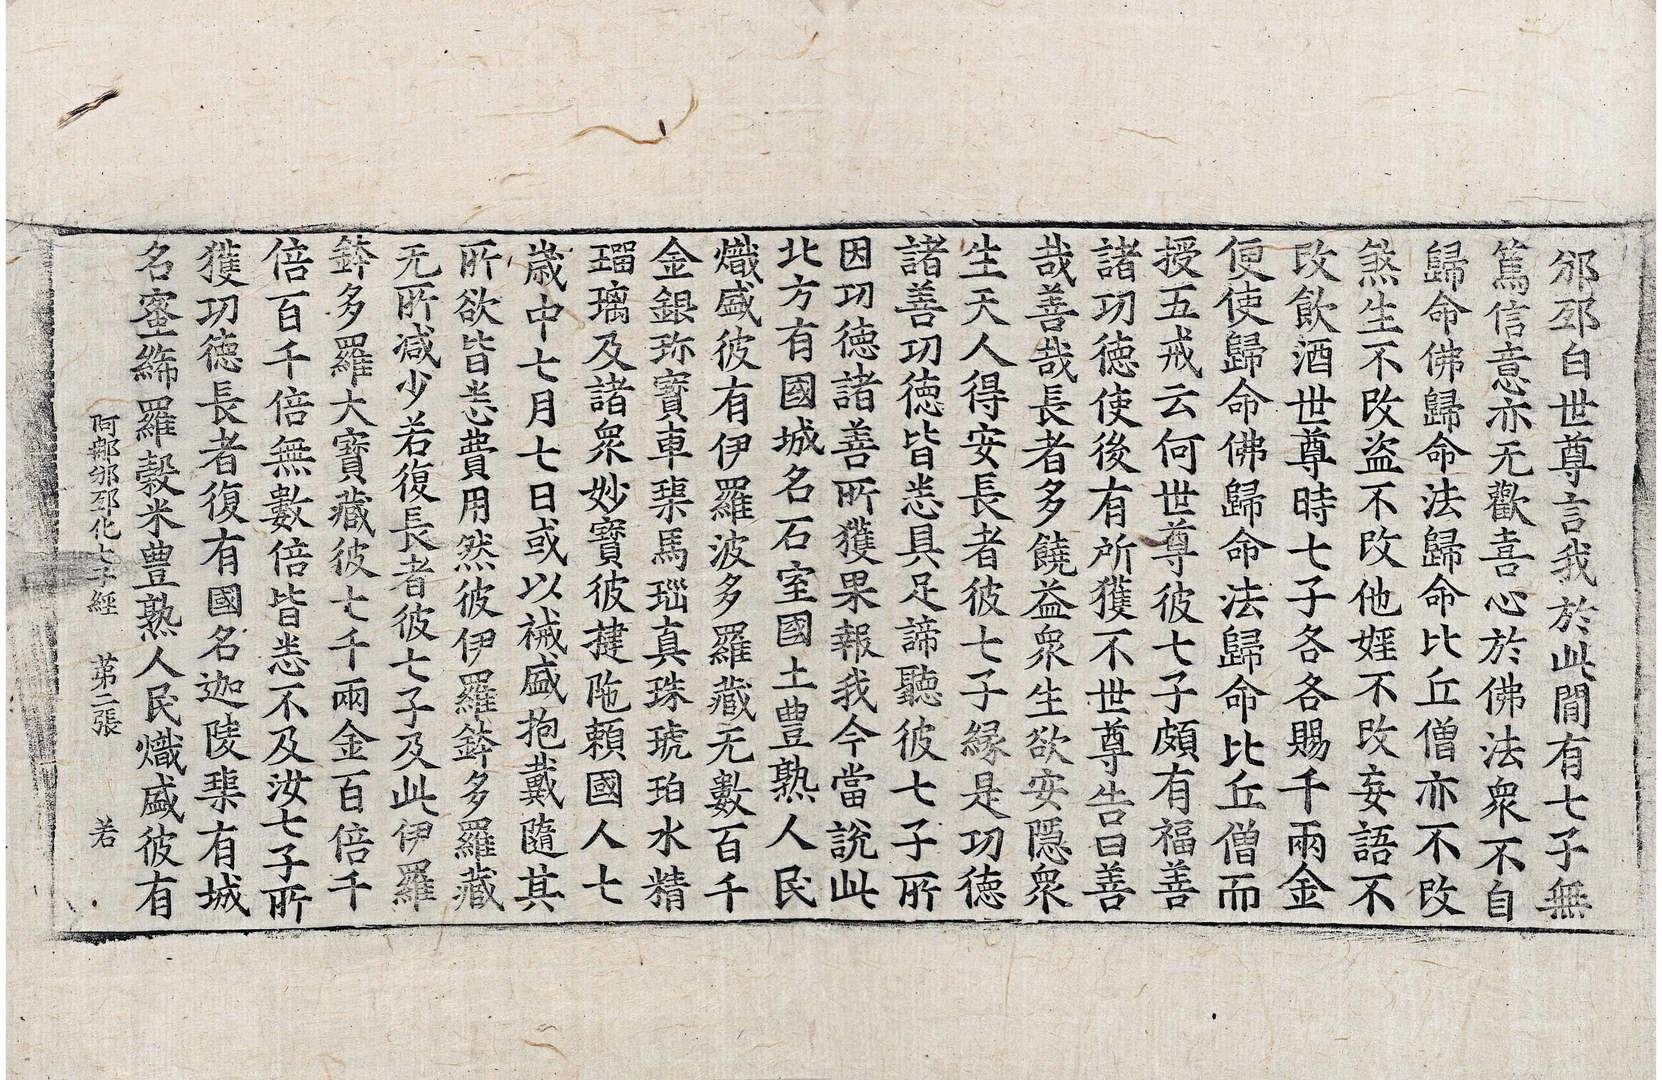 邠邳白世尊言我於此閒有七子無
篤信意亦无歡喜心於佛法衆不自
歸命佛歸命法歸命比丘僧亦不改
煞生不改盜不改他婬不改妄語不
改飮酒世尊時七子各各賜千兩金
便使歸命佛歸命法歸命比丘僧而
授五戒云何世尊彼七子頗有福善
諸功德使後有所獲不世尊告曰善
哉善哉長者多饒益衆生欲安隱衆
生天人得安長者彼七子緣是功德
諸善功德皆悉具足諦聽彼七子所
因功德諸善所獲果報我今當說此
北方有國城名石室國土豊熟人民
熾盛彼有伊羅波多羅藏无數百千
金銀珎寶車𤦲馬瑙真珠琥珀水精
瑠璃及諸衆妙寶彼揵陁賴國人七
歲中七月七日或以裓盛抱戴隨其
所欲皆悉費用然彼伊羅鉢多羅藏
无所减少若復長者彼七子及此伊羅
鉢多羅大寶藏彼七千兩金百倍千
倍百千倍無數倍皆悉不及汝七子所
獲功德長者復有國名迦陵𤦲有城
名蜜絺羅穀米豊熟人民熾盛彼有
阿䣝邠邳化七子經 第二張 若